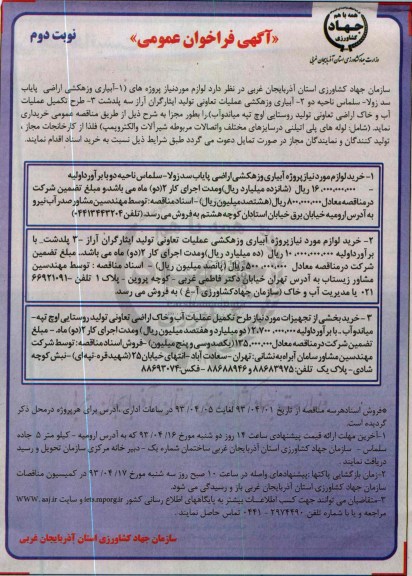 همه با هم
جهاد
کشاورزی
وزارت جهاد کشاورزی استان آذربایجان غربی
«آگهی فراخوان عمومی»
نوبت دوم
سازمان جهاد کشاورزی استان آذربایجان غربی در نظر دارد لوازم موردنیاز پروژه های (۱-آبیاری وزهکشی اراضی پایاب
سد زولا- سلماس ناحیه دو ۲- آبیاری وزهکشی عملیات تعاونی تولید ایثارگران آراز سه پلدشت ۳- طرح تکمیل عملیات
آب و خاک اراضی تعاونی تولید روستایی اوچ تپه میاندوآب) را بطور مجزا به شرح ذیل از طریق مناقصه عمومی خریداری
نماید. (شامل لوله های پلی اتیلنی درسایزهای مختلف واتصالات مربوطه شیرآلات والکتروپمپ) فلذا از کارخانجات مجاز ،
تولید کنندگان و نمایندگان مجاز در صورت تمایل دعوت می گردد طبق شرایط ذیل نسبت به خرید اسناد اقدام نمایند.
۱- خرید لوازم مورد نیاز پروژه آبیاری وزهکشی اراضی پایاب سد زولا-سلماس ناحیه دو با برآورد اولیه
۱۶,۰۰۰,۰۰۰,۰۰۰ ریال (شانزده میلیارد ریال) ومدت اجرای کار ۲(دو) ماه می باشد و مبلغ تضمین شرکت
در مناقصه معادل ۸۰۰,۰۰۰,۰۰۰ ریال (هشتصد میلیون ریال) - اسناد مناقصه: توسط مهندسین مشاور صدر آب نیرو
به آدرس ارومیه خیابان برق خیابان استادان کوچه هشتم به فروش می رسد (تلفن۰۴۴۱۳۴۴۳۲۰۴)
۲- خرید لوازم مورد نیاز پروژه آبیاری وزهکشی عملیات تعاونی تولید ایثارگران آراز -۳ پلدشت با
برآورد اولیه ۱۰,۰۰۰,۰۰۰,۰۰۰ ریال (ده میلیارد ریال) ومدت اجرای کار ۲(دو) ماه می باشد. مبلغ تضمین
شرکت در مناقصه معادل ۵۰۰,۰۰۰,۰۰۰ ریال (پانصد میلیون ریال) - اسناد مناقصه : توسط مهندسین
مشاور زیستاب به آدرس تهران خیابان دکتر فاطمی غربی - کوچه پروین - پلاک ۱ تلفن ۶۶۹۲۱۰۹۱-
۰۲۱ یا مدیریت آب و خاک (سازمان جهاد کشاورزی آ-غ) به فروش می رسد.
۳- خرید بخشی از تجهیزات مورد نیاز طرح تکمیل عملیات آب و خاک اراضی تعاونی تولید روستایی اوچ تپه-
میاندوآب ، با برآورد اولیه ۲,۷۰۰,۰۰۰,۰۰۰ (دو میلیارد و هفتصد میلیون ریال) ومدت اجرای کار ۲(دو) ماه - مبلغ
تضمین شرکت در مناقصه معادل ۱۳۵,۰۰۰,۰۰۰ (یکصد و سی و پنج میلیون) - فروش اسناد مناقصه: توسط
مهندسین مشاور سامان آبراه به نشانی: تهران- سعادت آباد -انتهای خیابان ۲۵ (شهید قره تپه ای) - نبش کوچه
شادی- پلاک یک تلفن: ۸۸۶۸۳۹۷۵ و ۸۸۶۸۸۹۴۶ - فکس: ۸۸۶۹۳۰۷۴
*فروش اسناد هرسه مناقصه از تاریخ ۹۳/۰۴/۰۱ لغایت ۹۳/۰۴/۰۵ در ساعات اداری ،آدرس برای هر پروژه در محل ذکر
گردیده است.
۱-آخرین مهلت ارائه قیمت پیشنهادی ساعت ۱۴ روز دو شنبه مورخ ۹۳/۰۴/۱۶ که به آدرس ارومیه - کیلو متر ۵ جاده
سلماس - سازمان جهاد کشاورزی استان آذربایجان غربی ساختمان شماره یک - دبیر خانه مرکزی سازمان تحویل و رسید
دریافت نمایند .
۲-زمان بازگشایی پاکتها :پیشنهادهای واصله در ساعت ۱۰ صبح روز سه شنبه مورخ ۹۳/۰۴/۱۷ در کمیسیون مناقصات
سازمان جهاد کشاورزی استان آذربایجان غربی باز و رسیدگی می شود.
۳-متقاضیان می توانند جهت کسب اطلاعات بیشتر به پایگاههای اطلاع رسانی کشور iets.mporg.ir و سایت WWW.aaj.ir
مراجعه و یا با شماره تلفن ۲۹۷۴۴۹۰ -۰۴۴۱ تماس حاصل نمایند .
سازمان جهاد کشاورزی استان آذربایجان غربی